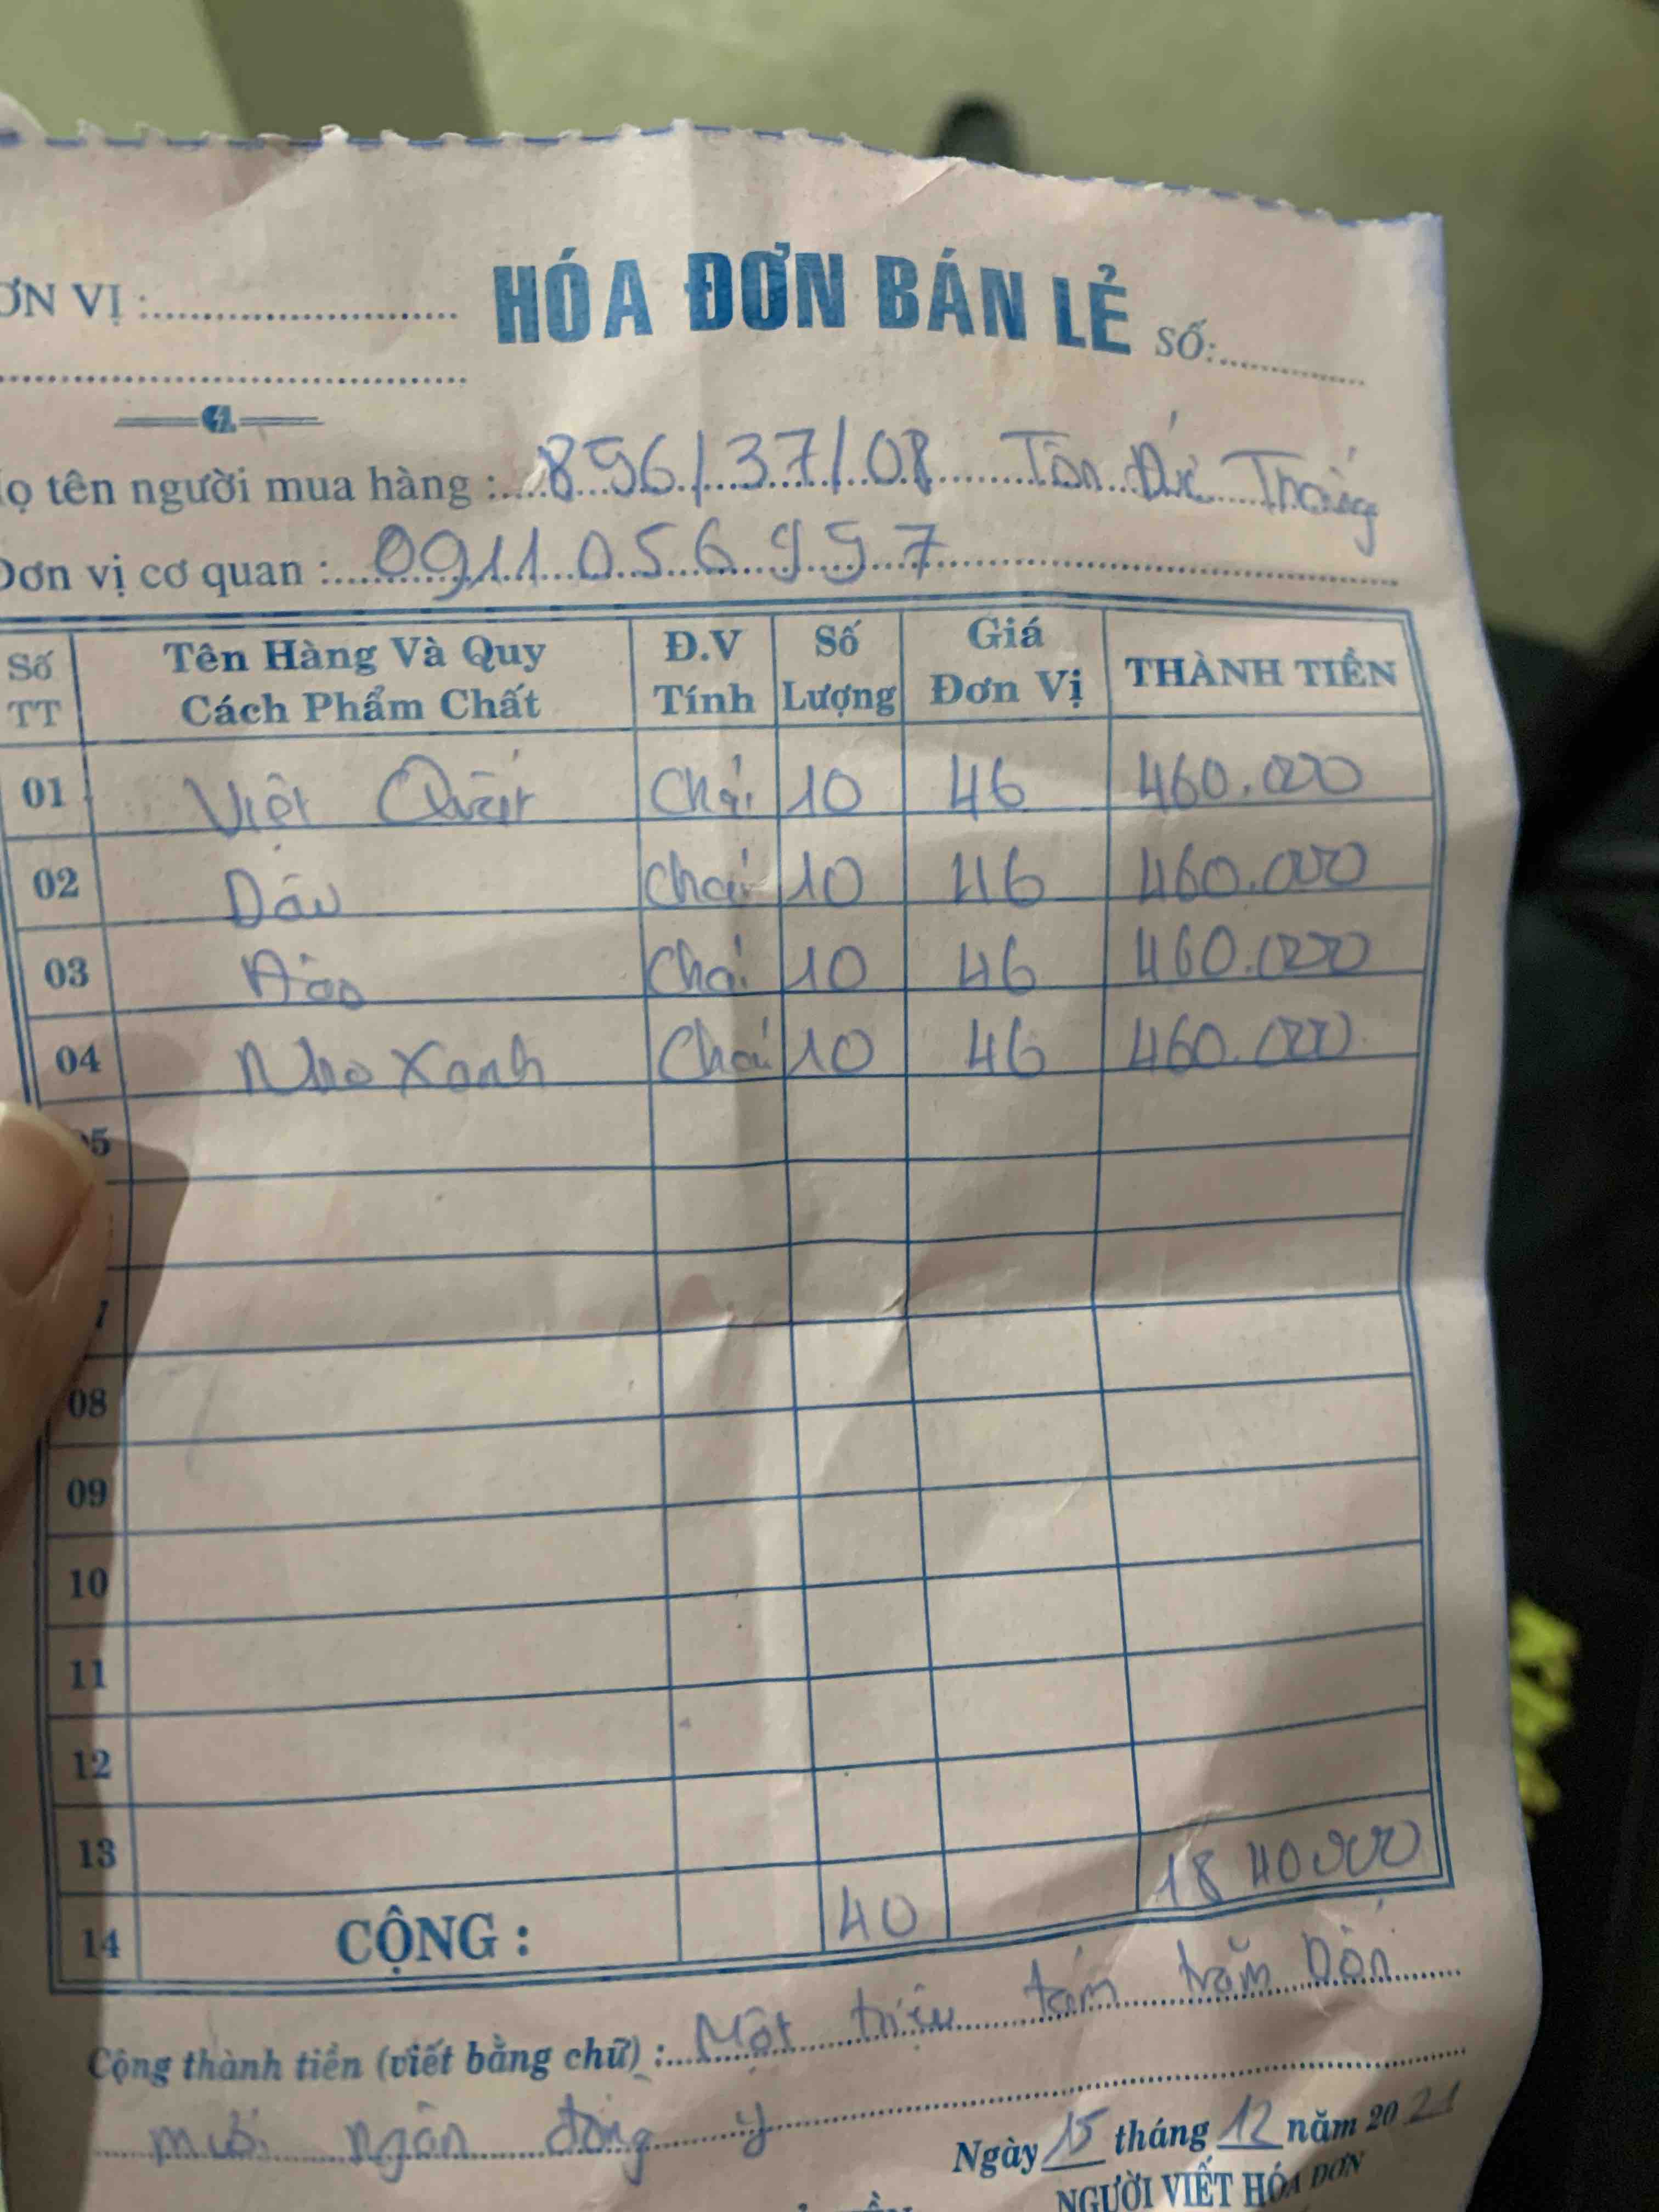 ƠN VỊ :
HÓA ĐƠN BÁN LẺ SỐ:
ọ tên người mua hàng : 896/37/08 Tôn Đức Thắng
Đơn vị cơ quan : 0911.056.997
Số TT Tên Hàng Và Quy Cách Phẩm Chất Đ.V Tính Số Lượng Giá Đơn Vị THÀNH TIỀN
01 Việt Quất Chai 10 46 460.000
02 Dâu Chai 10 46 460.000
03 Đào Chai 10 46 460.000
04 Nho Xanh Chai 10 46 460.000
5
7
08
09
10
11
12
13
14 CỘNG : 40 1840.000
Cộng thành tiền (viết bằng chữ) : Một triệu tám trăm bốn
mươi ngàn đồng
Ngày 15 tháng 12 năm 2021
NGƯỜI VIẾT HÓA ĐƠN